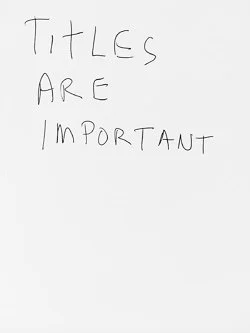 TitLES
ARE
IMPORTANT